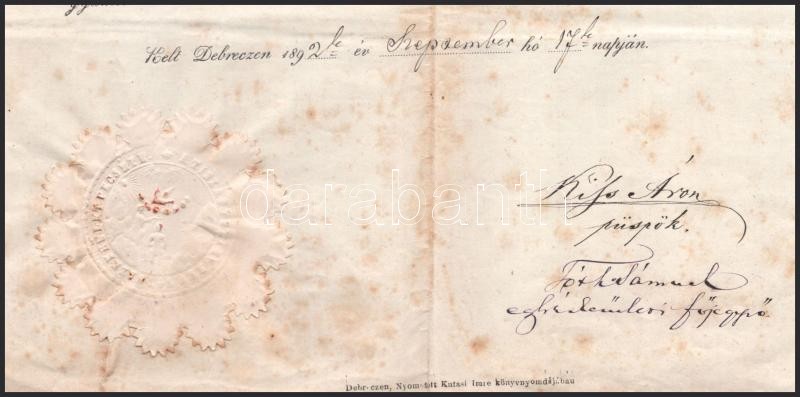 Kelt Debreczen 1892 ik év Szeptember hó 17 ik napján.
Kiss Áron
püspök.
Tóth Sámuel
egházkerületi főjegyző
Debreczen, Nyomatott Kutasi Imre könyvnyomdájában
darabanth